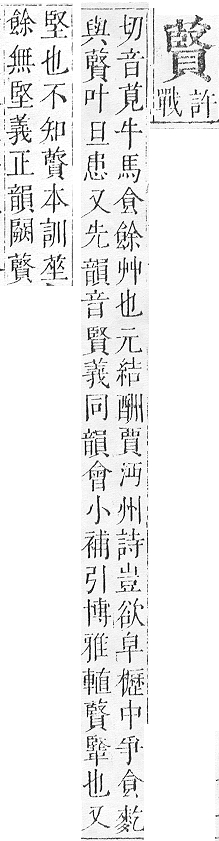 䕠
許
戰
切音莧牛馬食餘艸也元結酬賈沔州詩豈欲皁櫪中爭食麧
與䕠叶旦患又先韻音賢義同韻會小補引博雅䕠鞏也又
堅也不知䕠本訓莝
餘無堅義正韻闕䕠